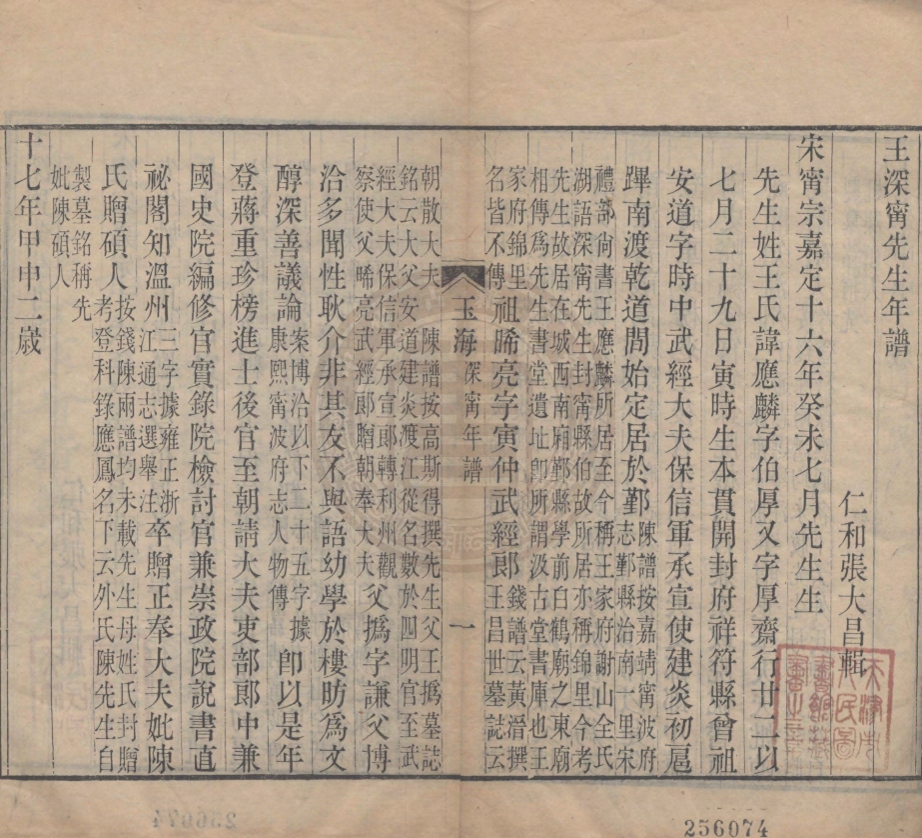 王深甯先生年譜
仁和張大昌輯
宋甯宗嘉定十六年癸未七月先生生
先生姓王氏諱應麟字伯厚又字厚齋行廿二以
七月二十九日寅時生本貫開封府祥符縣曾祖
安道字時中武經大夫保信軍承宣使建炎初扈
蹕南渡乾道間始定居於鄞陳譜按嘉靖甯波府志鄞縣治南一里宋
禮部尙書王應麟所居至今稱王家府謝山全氏
湖語深甯先生封甯縣伯故所居亦稱錦里今考
先生故居在城西南廂鄞縣學前白鶴廟之東廟
相傳爲先生書堂遺址卽所謂汲古堂書庫也王
家府錦里名皆不傳祖晞亮字寅仲武經郎錢譜云黃溍撰王昌世墓誌云
玉海 深甯年譜 一
朝散大夫 陳譜按高斯得撰先生父王撝墓誌
銘云大父安道建炎渡江從名數於四明官至武
經大夫保信軍承宣郎轉利州觀察使父晞亮武經郎贈朝奉大夫父撝字謙父博
洽多聞性耿介非其友不與語幼學於樓昉爲文
醇深善議論案博洽以下二十五字據康熙甯波府志人物傳卽以是年
登蔣重珍榜進士後官至朝請大夫吏部郎中兼
國史院編修官實錄院檢討官兼崇政院說書直
祕閣知溫州三字據雍正浙江通志選舉注卒贈正奉大夫妣陳
氏贈碩人按錢陳兩譜均未載先生母姓氏封贈考登科錄應鳳名下云外氏陳先生自
製墓銘稱先妣陳碩人
十七年甲申二歲
256074